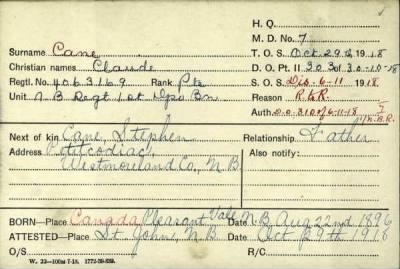 H. Q.
M. D. No. 7
Surname Cane T. O. S. Oct 29th 1918
Christian names Claude D. O. Pt. II 303 of 30-10-18
Regtl. No. 4063169 Rank Pte S. O. S. Dis. 6-11 1918
Unit N B Regt 1st Dpo Bn Reason
Auth. D.O. 310 of 6-11-18
Next of kin Cane, Stephen Relationship Father
Address Petitcodiac, Also notify:
Westmoreland Co, N.B
BORN—Place Canada Pleasant Vale N.B. Date Aug 22nd 1896
ATTESTED—Place St. John, N.B. Date Oct 29th 1918
O/S R/C